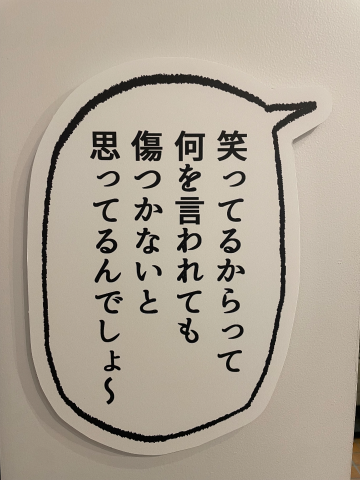 笑ってるからって
何を言われても
傷つかないと
思ってるんでしょ～